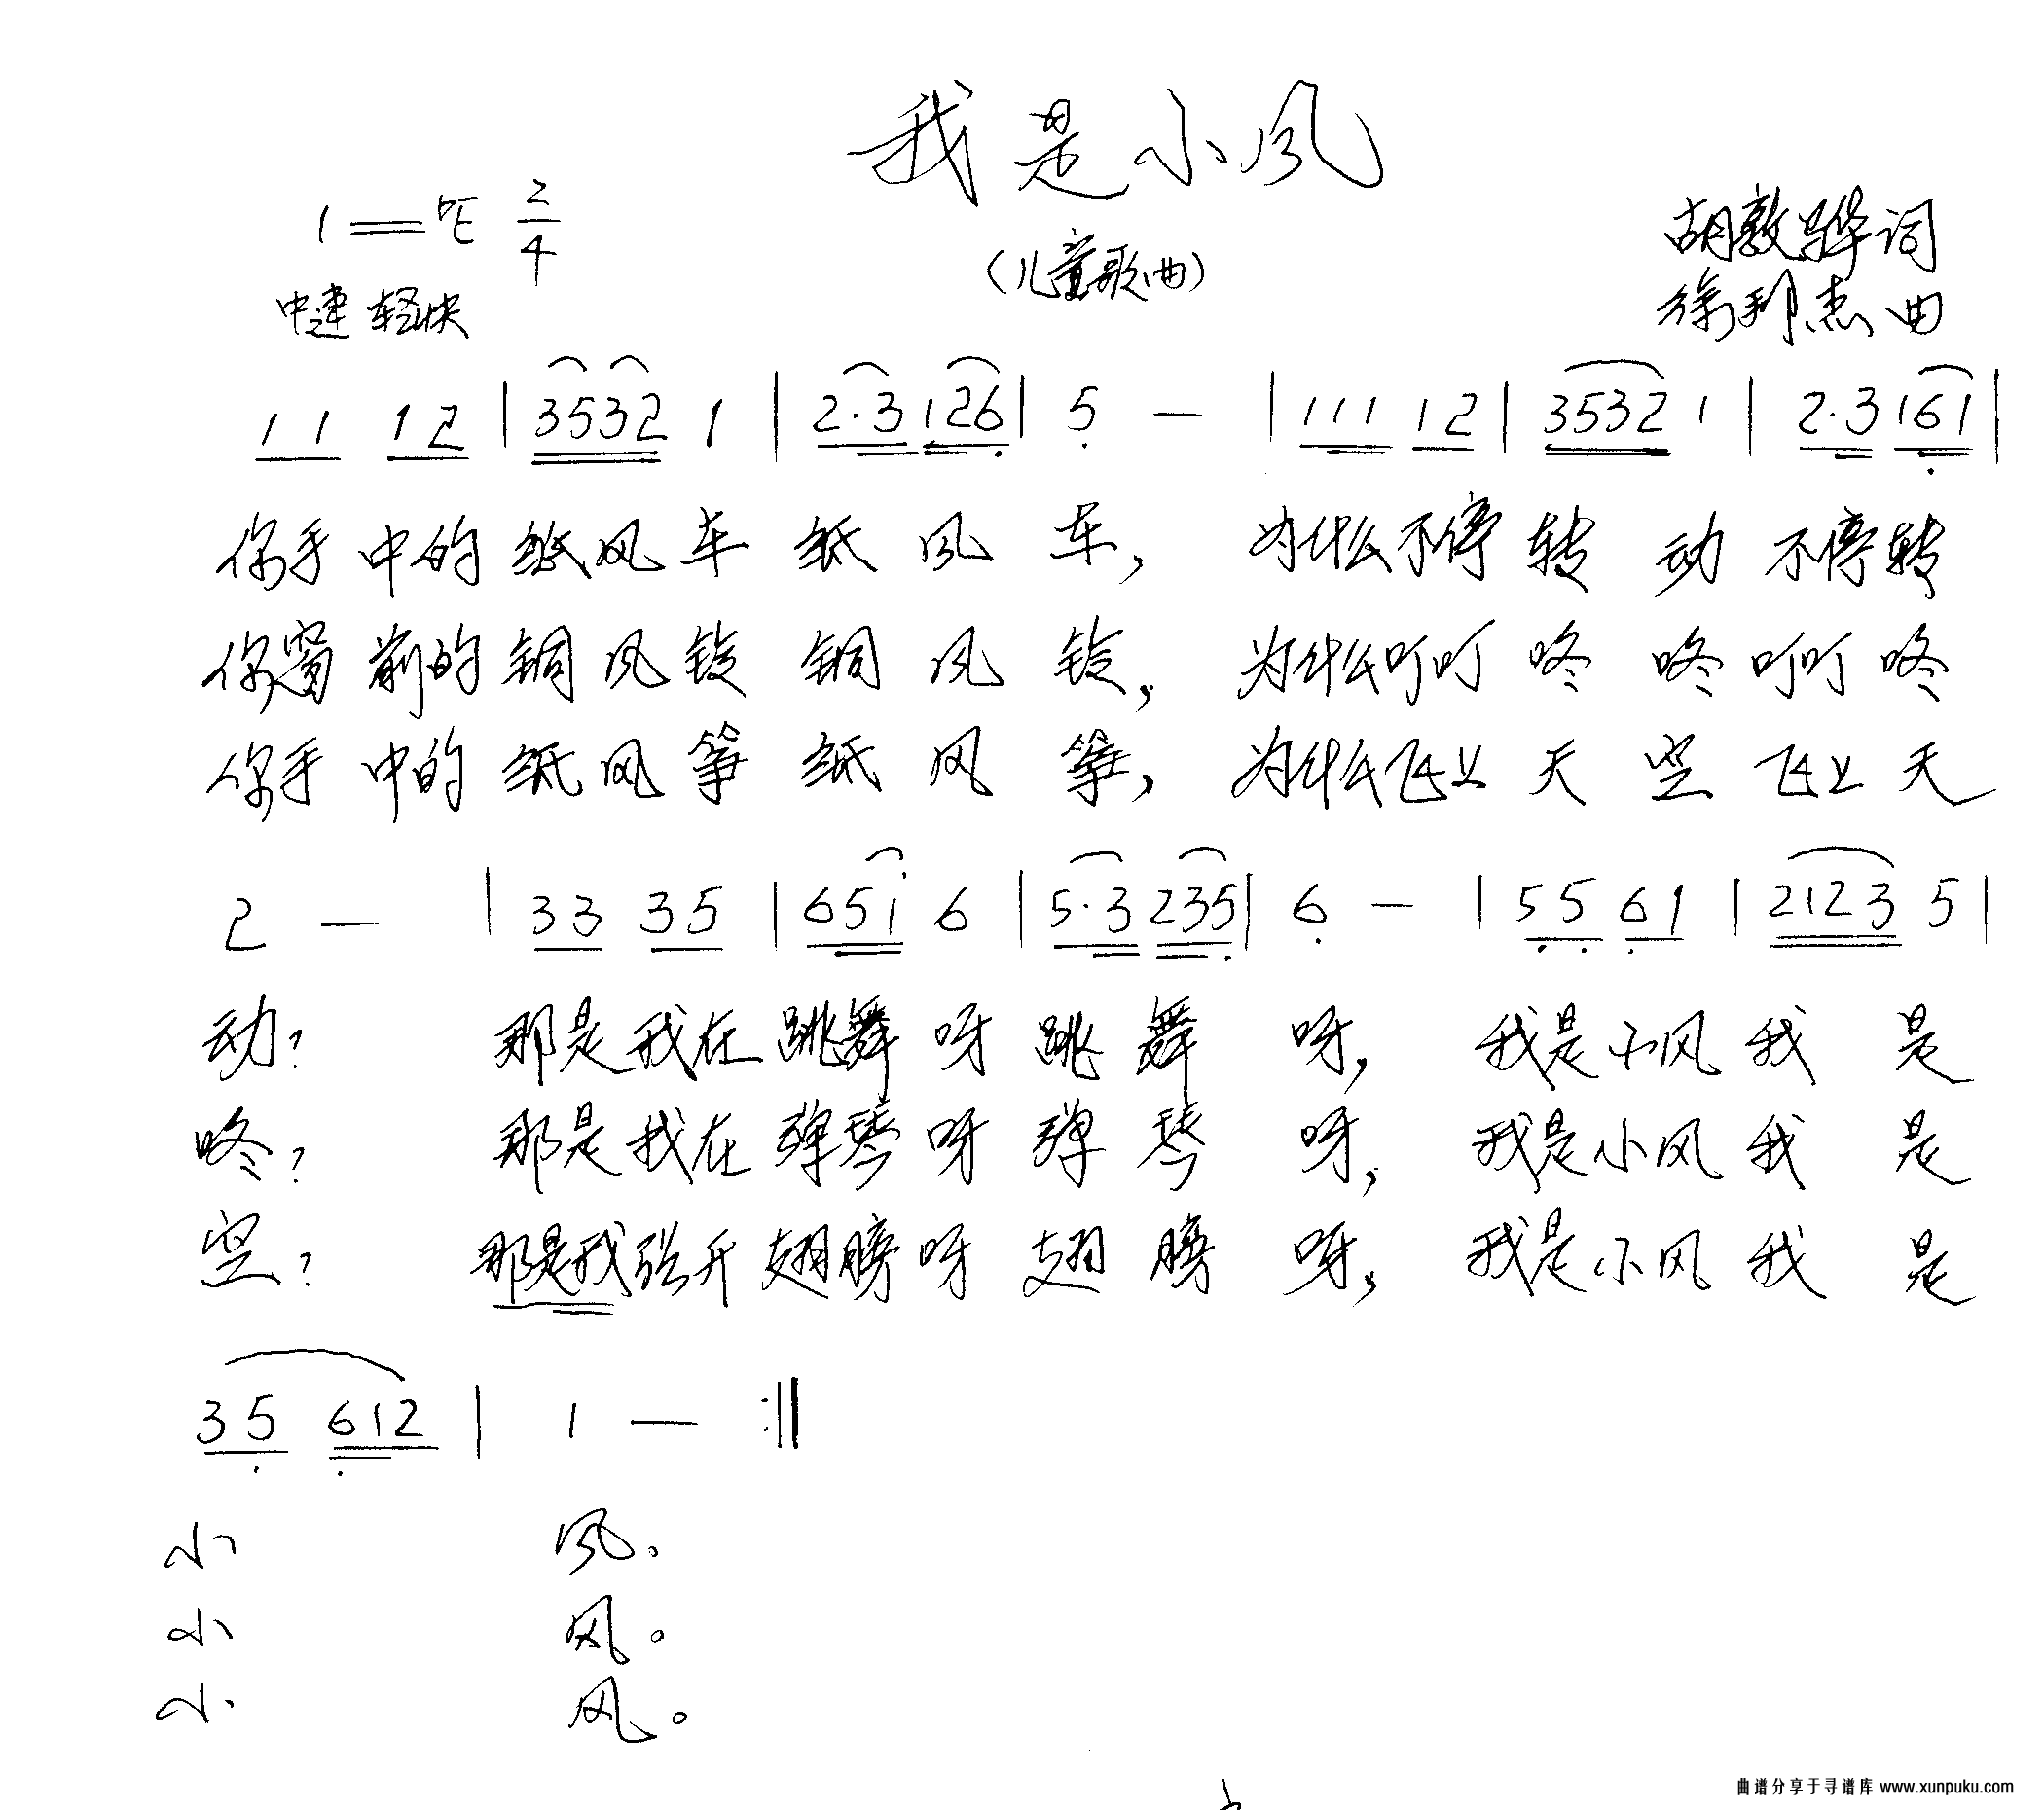 我是小風
1=♭E 2/4
(儿童歌曲)
胡敦骅词
中速 轻快
徐邦杰曲
11 12 | 3532 1 | 2·3 126 | 5 — | 111 12 | 3532 1 | 2·3 161 |
你手中的纸风车纸風车，为什么不停转动不停转
你窗前的铜风铃铜风铃，为什么叮叮咚咚叮叮咚
你手中的纸风筝纸风筝，为什么飞上天空飞上天
2 — | 33 35 | 651 6 | 5·3 235 | 6 — | 55 61 | 2123 5 |
动？那是我在跳舞呀跳舞呀，我是小风我是
咚？那是我在弹琴呀弹琴呀，我是小风我是
空？那是我张开翅膀呀翅膀呀，我是小风我是
35 612 | 1 — :||
小風。
小风。
小风。
曲谱分享于寻谱库 www.xunpuku.com